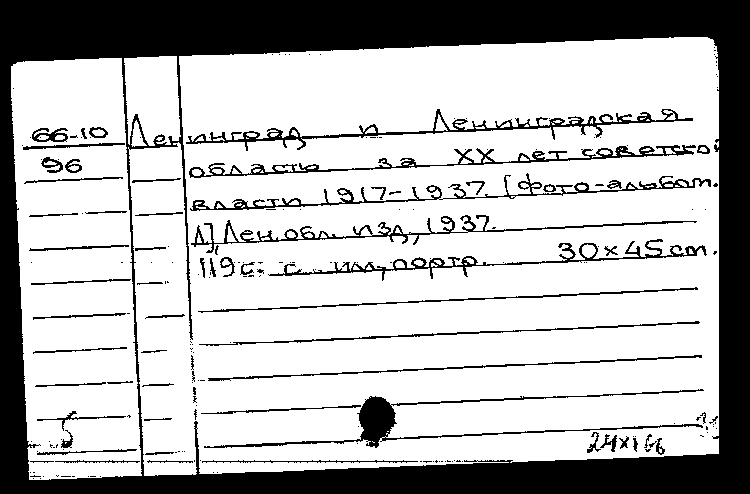 66-10 Ленинград и Ленинградская
96 область за XX лет советской
власти 1917-1937. [Фото-альбом.
Л], Лен.обл. изд, 1937.
119 с. с илл, портр. 30×45 cm.
5